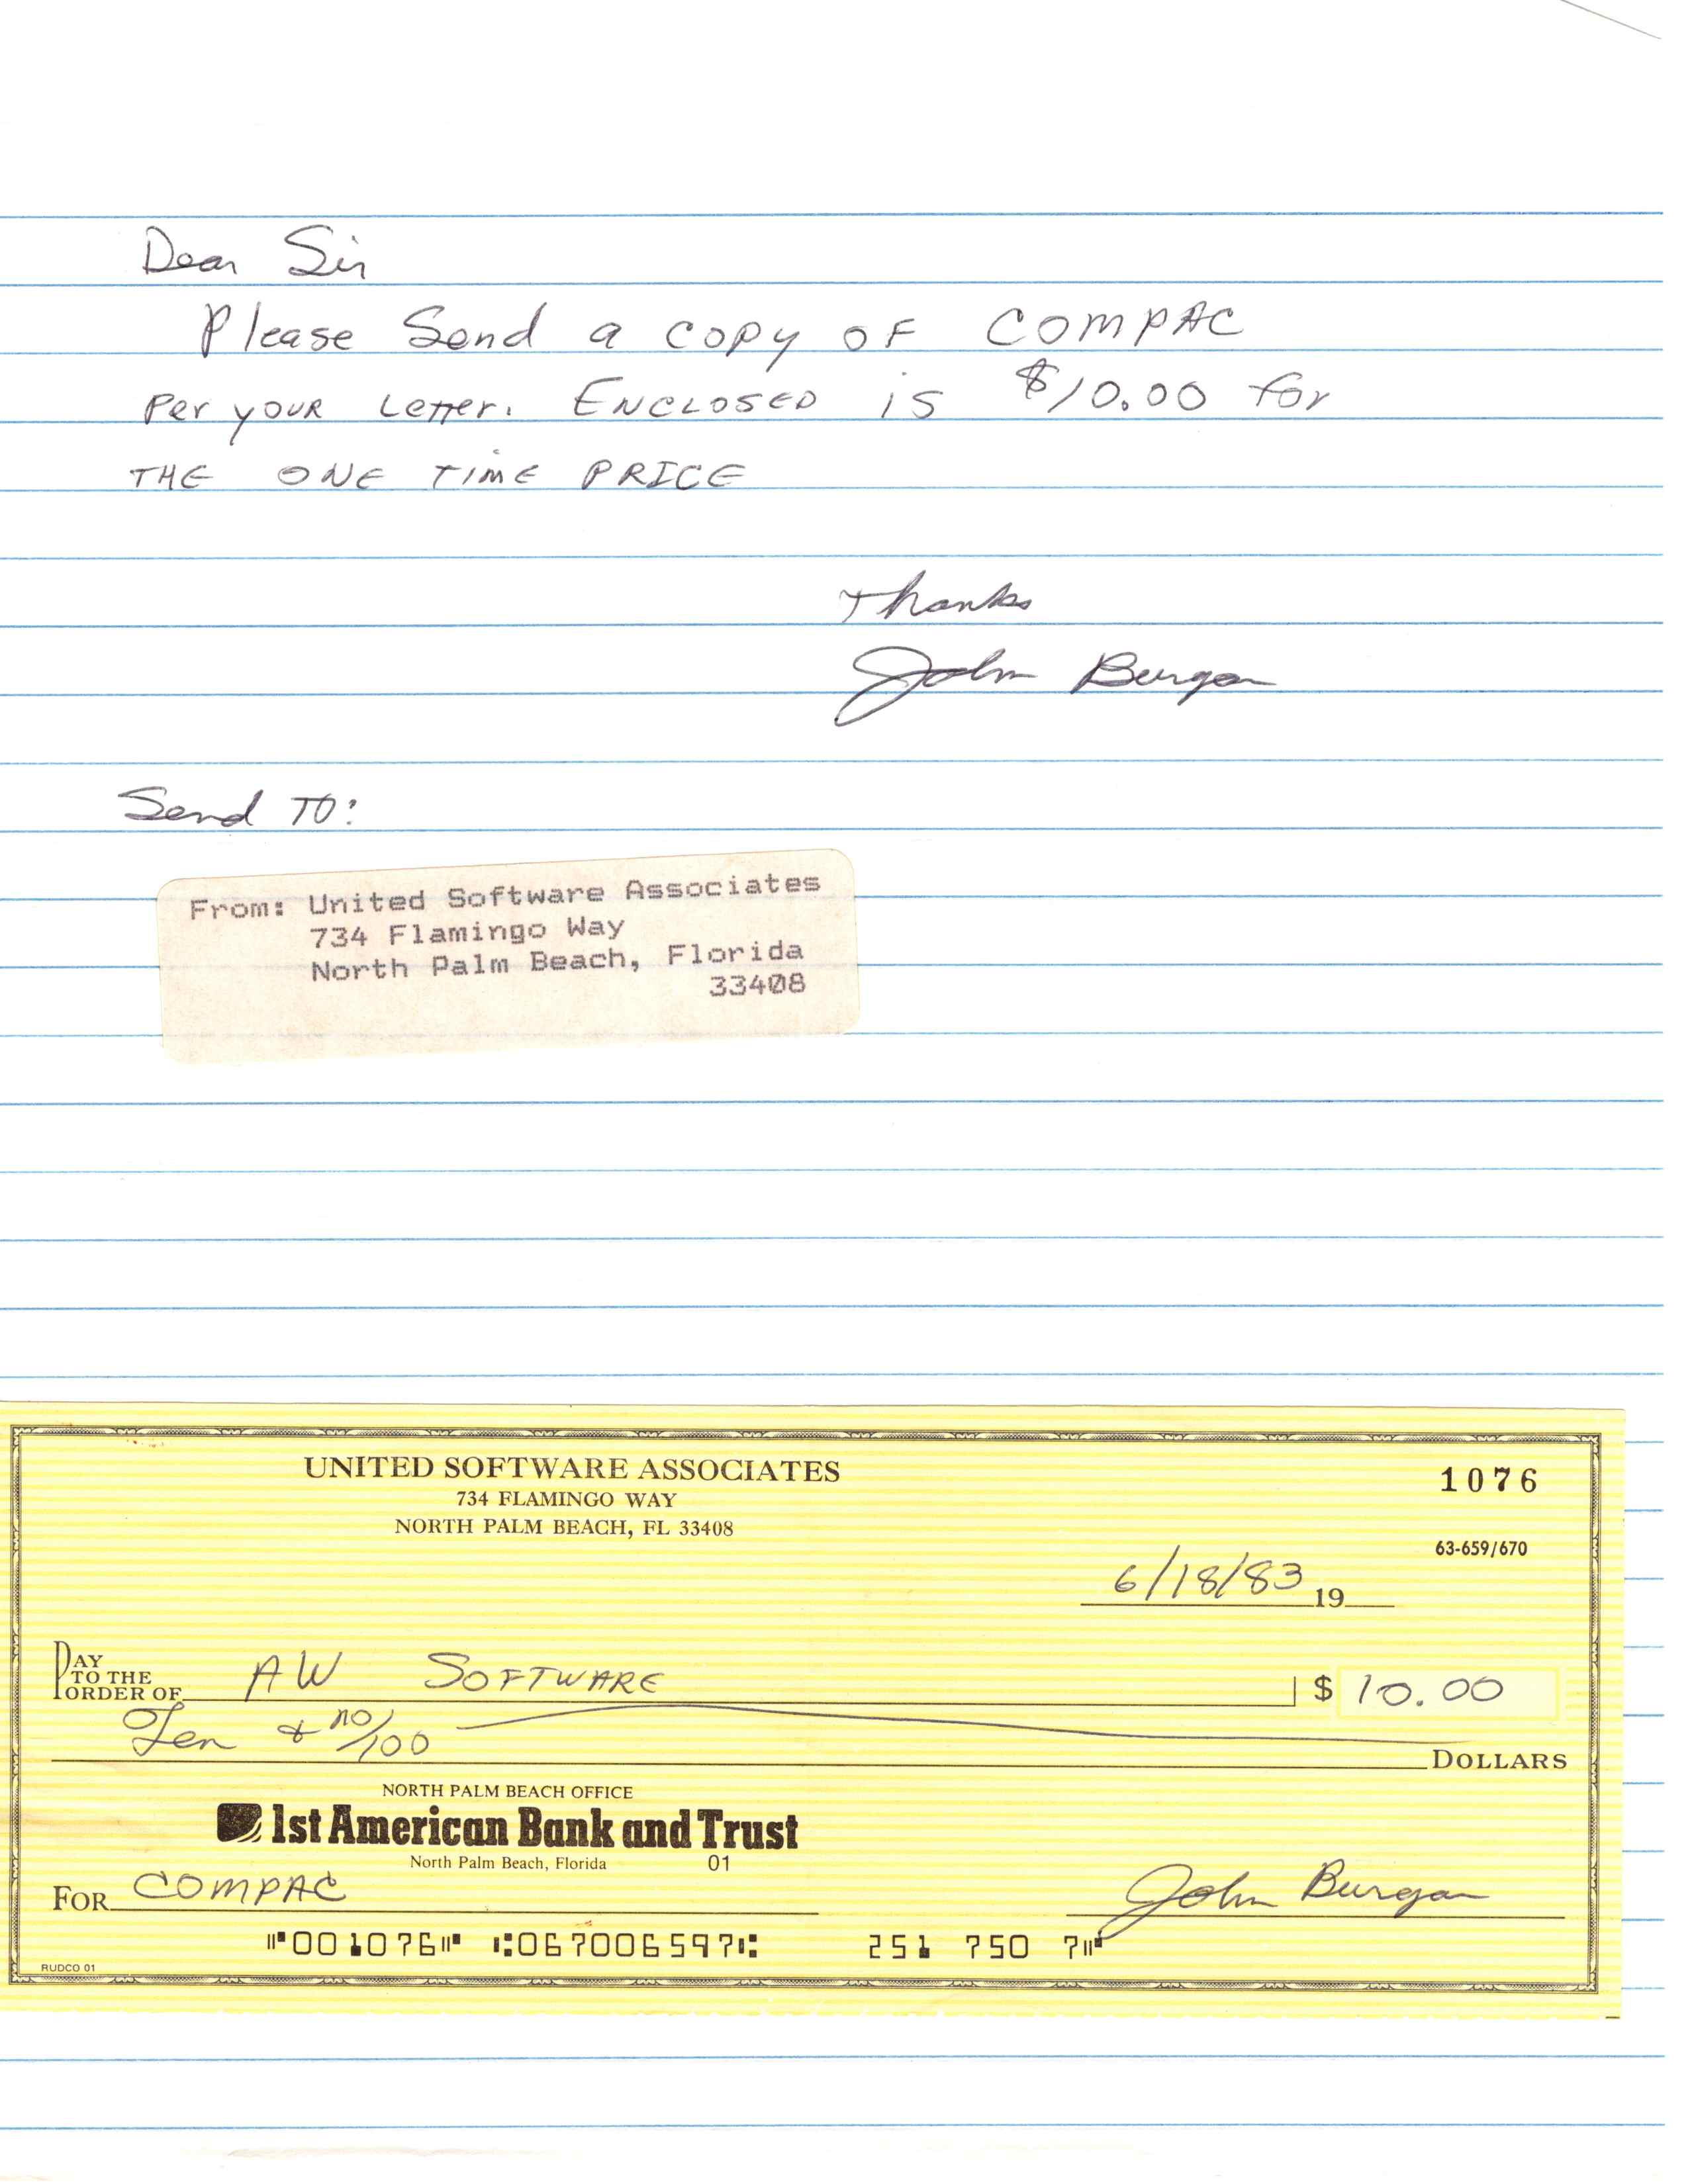 Dear Sir
Please Send a copy of COMPAC
Per your Letter. ENCLOSED is $10.00 for
THE ONE TIME PRICE
Thanks
John Burgan
Send TO:
From: United Software Associates
734 Flamingo Way
North Palm Beach, Florida
33408
UNITED SOFTWARE ASSOCIATES
734 FLAMINGO WAY
NORTH PALM BEACH, FL 33408
1076
63-659/670
6/18/83 19
PAY TO THE ORDER OF AW SOFTWARE $ 10.00
Ten & no/100 DOLLARS
NORTH PALM BEACH OFFICE
1st American Bank and Trust
North Palm Beach, Florida 01
FOR COMPAC John Burgan
⑈001076⑈ ⑆067006597⑆ 251 750 7⑈
RUDCO 01